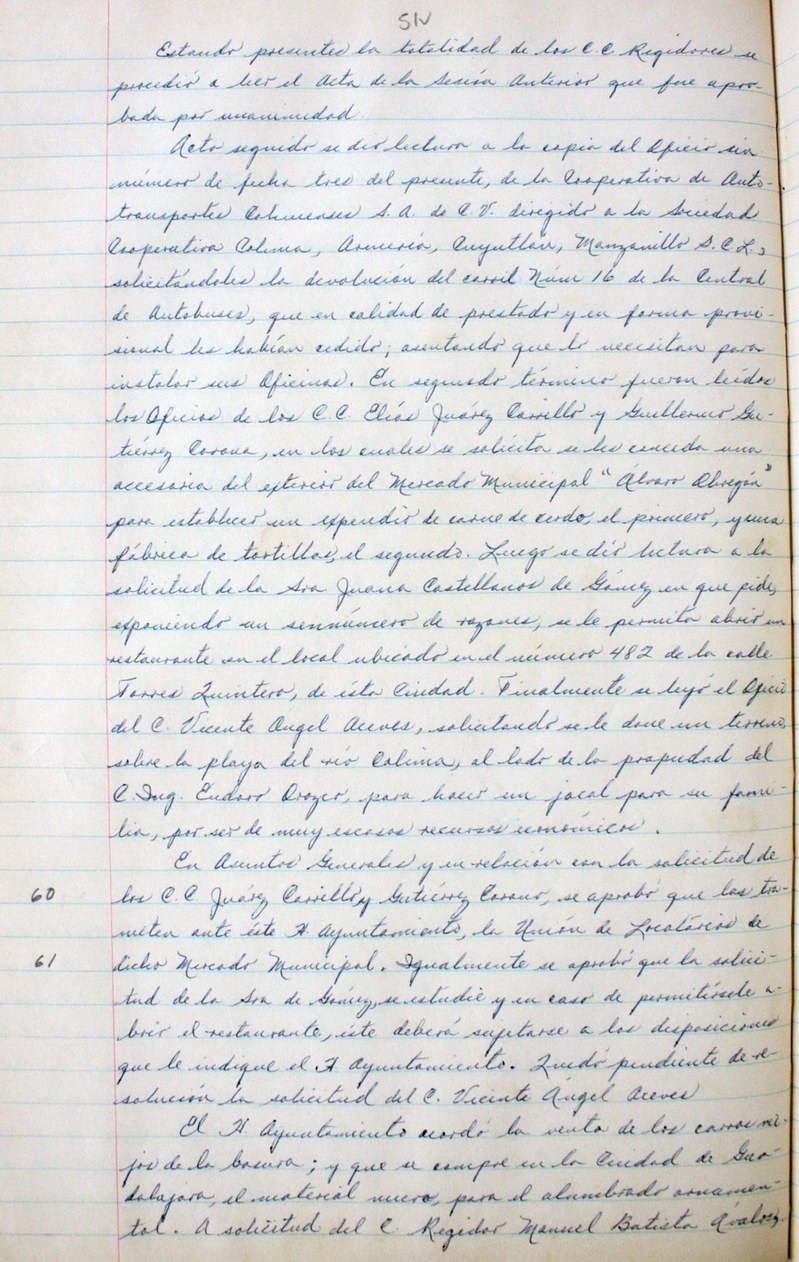 SN
Estando presentes la totalidad de los C.C. Regidores se
procedió a leer el Acta de la Sesión Anterior que fue apro-
bada por unanimidad.
Acto seguido se dió lectura a la copia del Oficio sin
número de fecha tres del presente, de la Cooperativa de Auto-
transportes Colimenses S.A. de C.V. dirigido a la Sociedad
Cooperativa Colima, Armería, Cuyutlán, Manzanillo S.C.L.,
solicitándoles la devolución del carril Núm 16 de la Central
de Autobuses, que en calidad de prestado y en forma provi-
sional les habían cedido; asentando que lo necesitan para
instalar sus Oficinas. En segundo término fueron leídos
los Oficios de los C.C. Elías Juárez Carrillo y Guillermo Gu-
tiérrez Corona, en los cuales se solicita se les conceda una
accesoria del exterior del Mercado Municipal "Álvaro Obregón"
para establecer un expendio de carne de cerdo, el primero, y una
fábrica de tortillas, el segundo. Luego se dió lectura a la
solicitud de la Sra Juana Castellanos de Gómez en que pide,
exponiendo un sennúmero de razones, se le permita abrir un
restaurante en el local ubicado en el número 482 de la calle
Torres Quintero, de ésta Ciudad. Finalmente se leyó el Oficio
del C. Vicente Angel Aceves, solicitando se le done un terreno,
sobre la playa del río Colima, al lado de la propiedad del
C. Ing. Eudoro Orozco, para hacer un jacal para su fami-
lia, por ser de muy escasos recursos económicos.
En Asuntos Generales y en relación con la solicitud de
60 los C.C. Juárez Carrillo y Gutiérrez Corona, se aprobó que las tra-
miten ante éste H. Ayuntamiento, la Unión de Locatarios de
61 dicho Mercado Municipal. Igualmente se aprobó que la solici-
tud de la Sra de Gómez, se estudie y en caso de permitírsele a-
brir el restaurante, éste deberá sujetarse a las disposiciones
que le indique el H. Ayuntamiento. Quedó pendiente de re-
solución la solicitud del C. Vicente Ángel Aceves
El H. Ayuntamiento acordó la venta de los carros vie-
jos de la basura; y que se compre en la Ciudad de Gua-
dalajara, el material nuevo, para el alumbrado ornamen-
tal. A solicitud del C. Regidor Manuel Batista Ávalos,